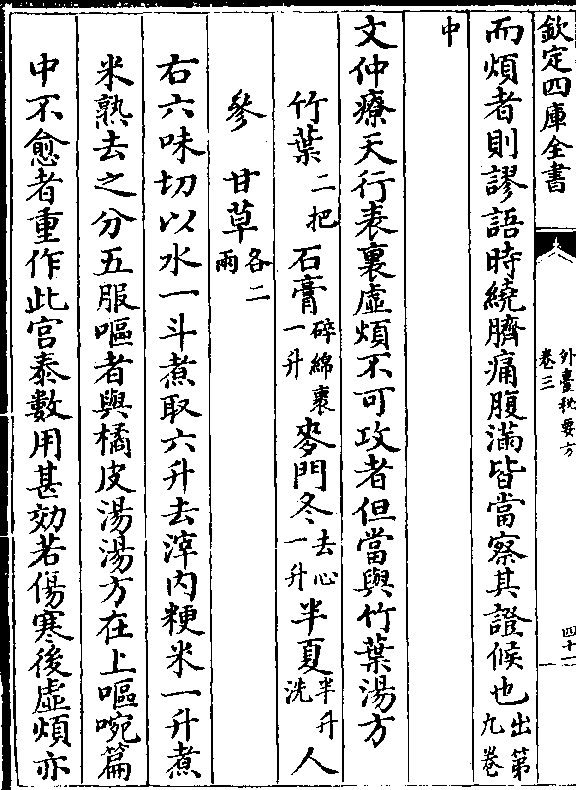 欽定四庫全書
外臺秘要方
卷三
四十一
而煩者則謬語時繞臍痛腹滿皆當察其證候也出第九卷
中
文仲療天行表裏虛煩不可攻者但當與竹葉湯方
竹葉二把 石膏碎綿裹一升 麥門冬去心一升 半夏半升洗 人
參 甘草各二兩
右六味切以水一斗煮取六升去滓内粳米一升煮
米熟去之分五服嘔者與橘皮湯湯方在上嘔啘篇
中不愈者重作此官泰數用甚効若傷寒後虛煩亦